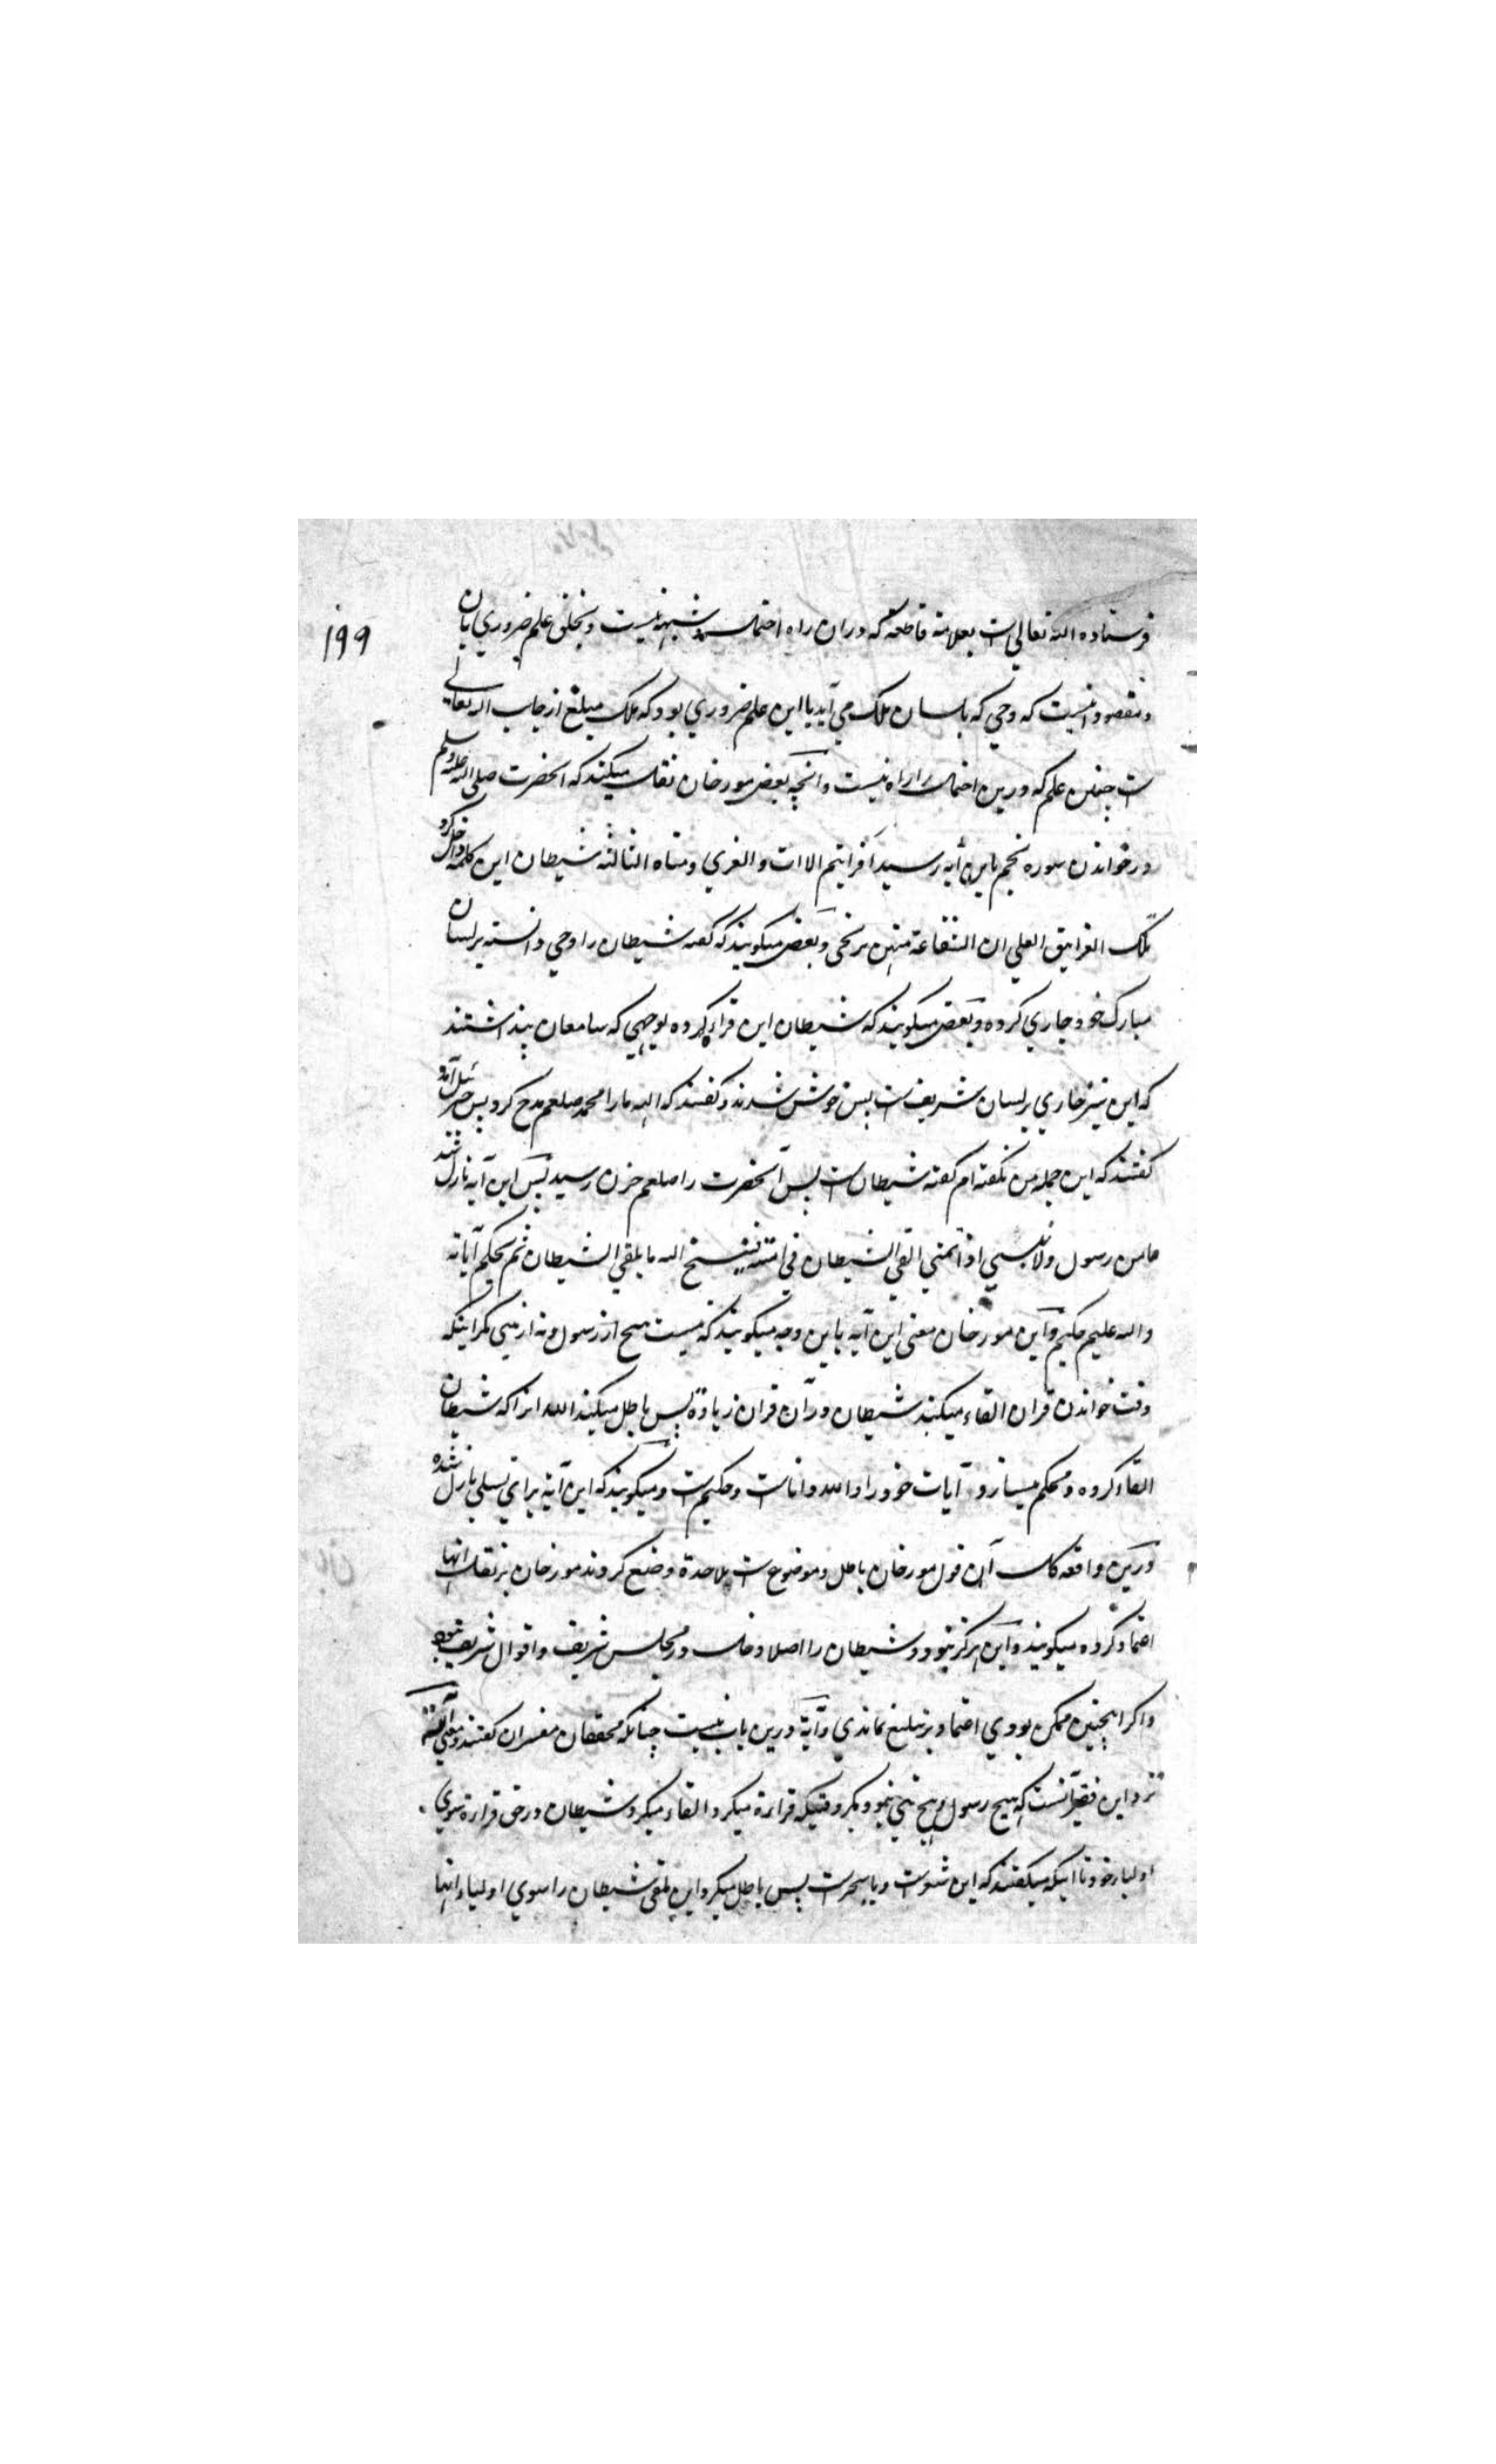 ۱۹۹
فرستاده الله تعالی است بعلامة قاطعه که دران راه احتمال شبهه نیست و بخلق علم ضروری بان
و مقصود انیست که وحی که بلسان ملک می آید با این علم ضروری بود که ملک مبلغ از جانب الله تعالی
ست چنین علم که درین احتمال را راه نیست و آنچه بعض مورخان نقل میکنند که انحضرت صلی الله علیه وسلم
در خواندن سوره نجم باین آیه رسید افرایتم الات والعزی و مناه الثالثه شیطان این کلمه داخل کرد
تلک الغرانیق العلی ان الشفاعة منهن ترتجی و بعض میکویند که کفته شیطان را وحی دانسته بر لسان
مبارک خود جاری کرده و بعض میکویند که شیطان این قراءة کرده بوجهی که سامعان پنداشتند
که این نیز جاری بر لسان شریف است پس خوش شدند و کفتند که الهه مارا محمد صلعم مدح کرد پس جبرئیل آمد
کفتند که این جمله من نکفته ام کفته شیطان ست پس آنحضرت را صلعم حزن رسید پس این آیه نازل شد
مامن رسول ولا نبی اذا تمنی القی الشیطان فی امنیته فینسخ الله ما یلقی الشیطان ثم یحکم آیاته
والله علیم حکیم و این مورخان معنی این آیه باین وجه میکویند که نیست هیچ از رسول و نه از نبی مکر اینکه
وقت خواندن قران القاء میکند شیطان دران قران زیادة پس باطل میکند الله انرا که شیطان
القاء کرده و محکم میسازد آیات خود را و الله داناست و حکیم ست و میکویند که این آیه برای تسلی نازل شده
درین واقعه کل آن قول مورخان باطل و موضوع ست ملاحدة وضع کردند مورخان بر نقل انها
اعتماد کرده میکویند و این هرکز نبود و شیطان را اصلا دخل در مجلس شریف و اقوال شریف نبود
و اکر اینچنین ممکن بودی اعتماد بر تبلیغ نماندی و آیه درین باب نیست چنانکه محققان مفسران کفتند و معنی آیه
نزد این فقیر آنست که هیچ رسول و هیچ نبی نبود مکر وقتیکه قراءة میکرد القاء میکرد شیطان در حق قراءة سوی
اولیاء خود تا اینکه میکفتند که این شعرست و یا سحرست پس باطل میکرد این ملقی شیطان را سوی اولیاء انها